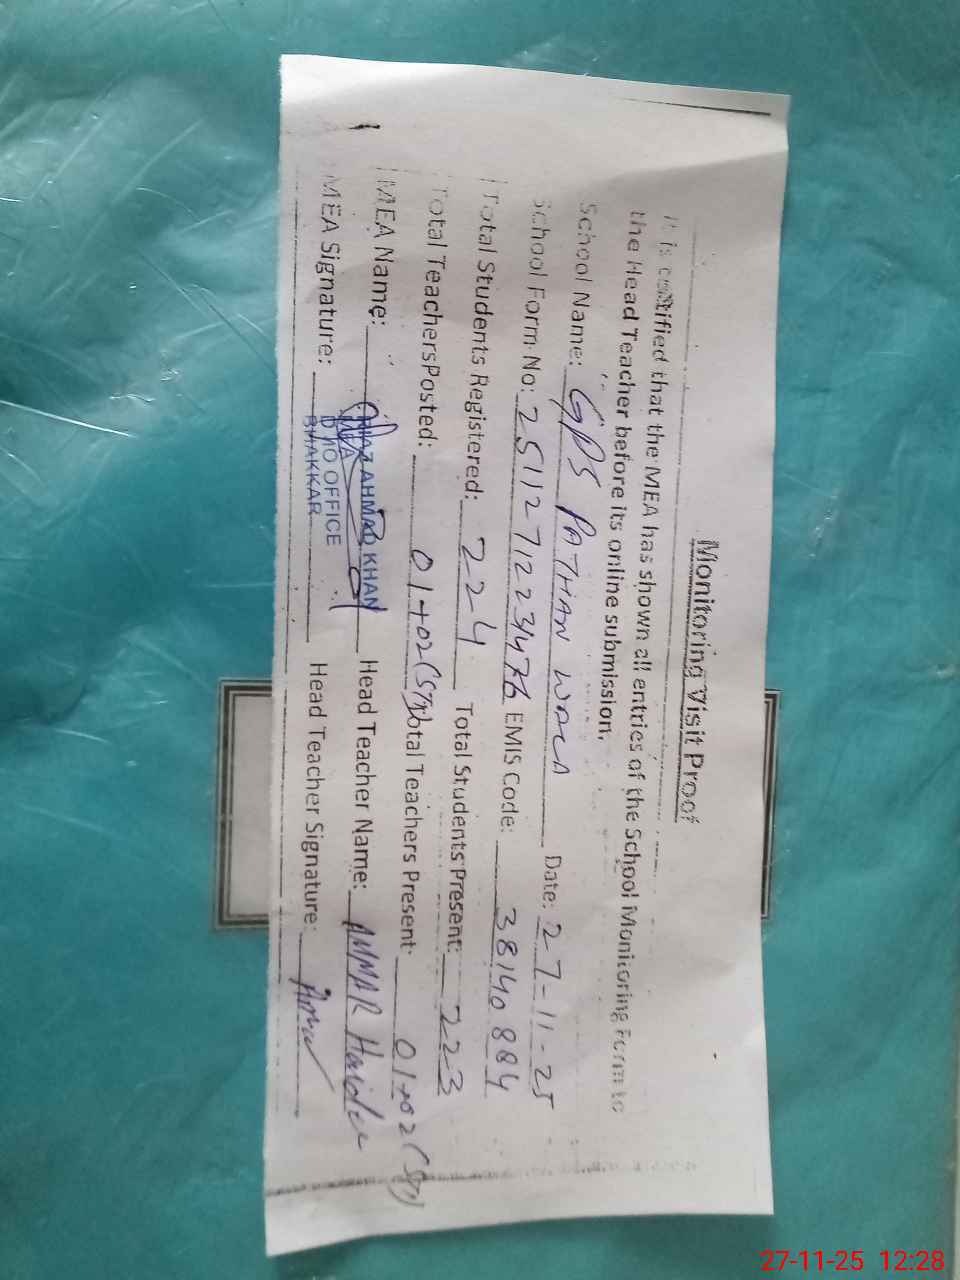 Monitoring Visit Proof
It is certified that the MEA has shown all entries of the School Monitoring Form to
the Head Teacher before its online submission.
School Name: GPS PATHAN WALA Date: 27-11-25
School Form No: EMIS Code: 38140884
Total Students Registered: 224 Total Students Present: 223
Total Teachers Posted: 01+02(STI) Total Teachers Present: 01+02(STI)
MEA Name: NIAZ AHMAD KHAN Head Teacher Name: AMMAR Haider
MEA
MEA Signature: DMO OFFICE Head Teacher Signature:
BHAKKAR
27-11-25 12:28